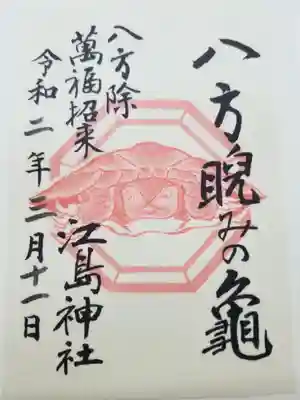 八方睨みの亀
八方除
萬福招来
江島神社
令和二年三月十一日